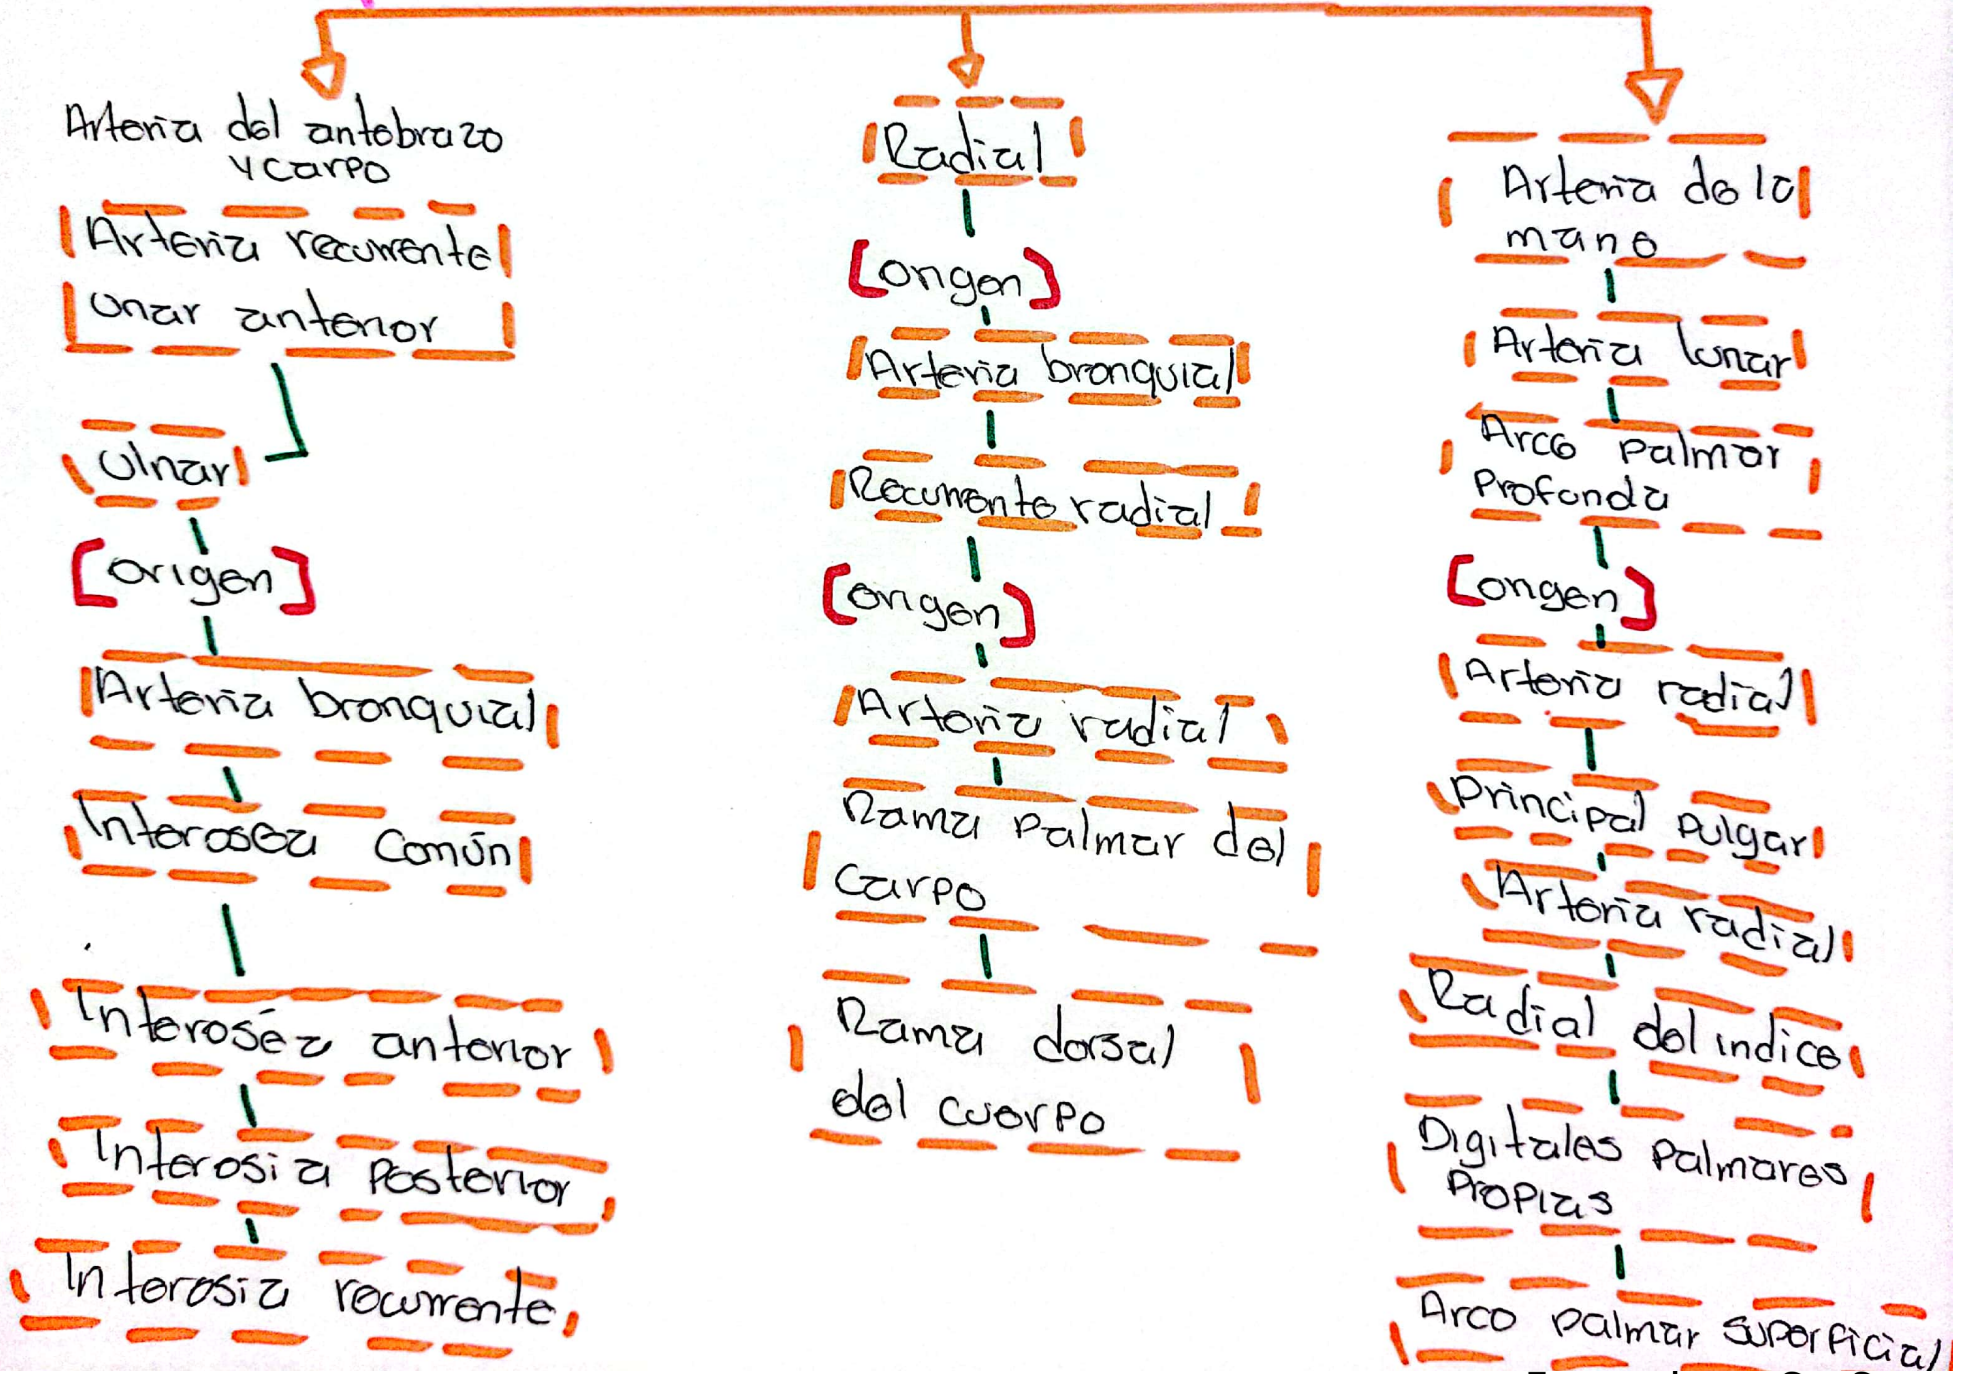 Arteria del antebrazo
y carpo
Arteria recurrente
unar anterior
Ulnar
[origen]
Arteria bronquial
Interosea Común
Interoséa anterior
Interosia Posterior
Interosia recurrente
Radial
[origen]
Arteria bronquial
Recurrente radial
[origen]
Arteria radial
Rama Palmar del
Carpo
Rama dorsal
del cuerpo
Arteria de la
mano
Arteria lunar
Arco Palmar
Profunda
[origen]
Arteria radial
Principal Pulgar
Arteria radial
Radial del indice
Digitales Palmares
Propias
Arco Palmar Superficial